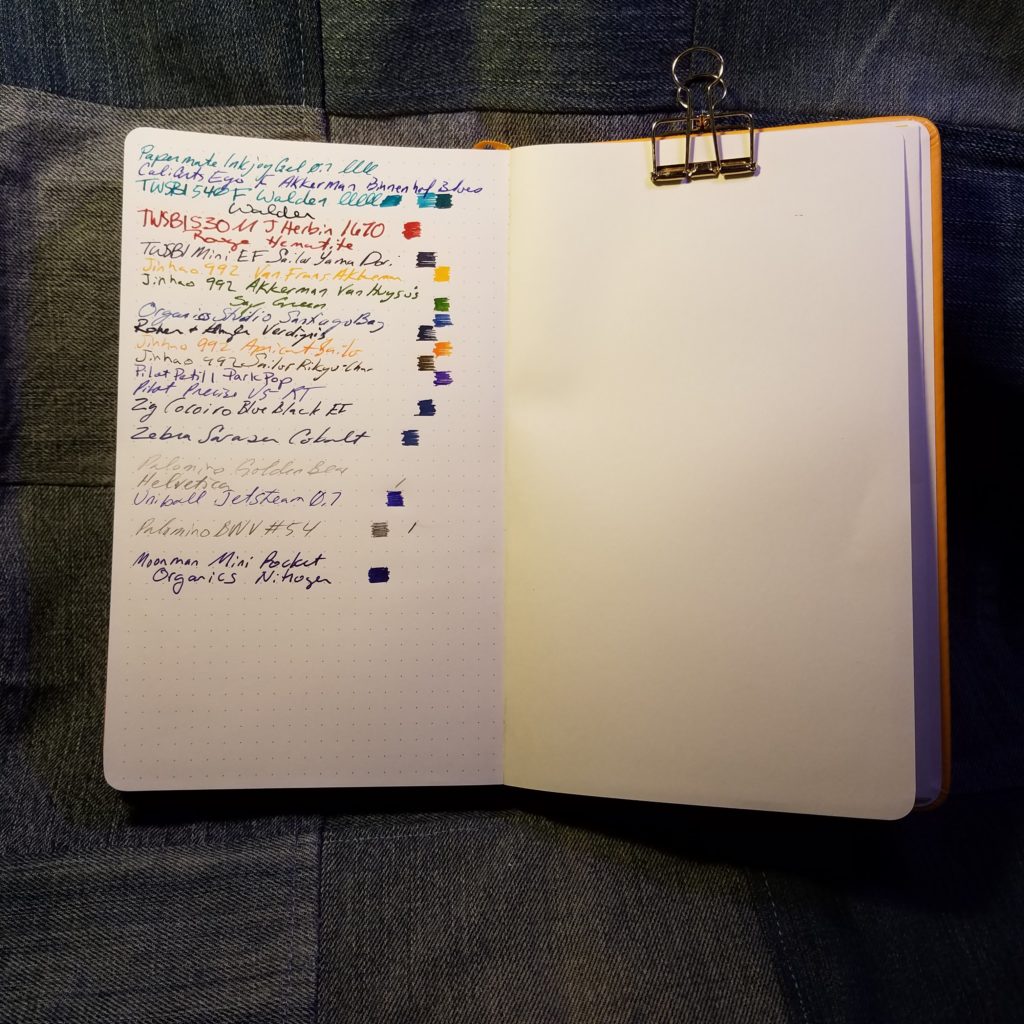 Papermate Inkjoy Gel 0.7 llll
CaliArts Ego F Akkerman Binnenhof Blues
TWSBI 540 F Walden lllll
Walden
TWSBI 530 M J Herbin 1670
Rouge Hematite
TWSBI Mini EF Sailor Yama Dori
Jinhao 992 Van Frans Akkerman
Jinhao 992 Akkerman Van Huysu's
Sap Green
Organics Studio Santiago Bay
Rohrer + Verdigris
Jinhao 992 Apricot
Jinhao 992 Sailor Rikyu-Cha
Pilot Petit 1 ParkPop
Pilot Precise V5 RT
Zig Cocoiro Blue Black EF
Zebra Sarasa Cobalt
Palomino Golden Bear
Helvetica
Uniball Jetstream 0.7
Palomino BWV #54
Moonman Mini Pocket
Organics Nitrogen